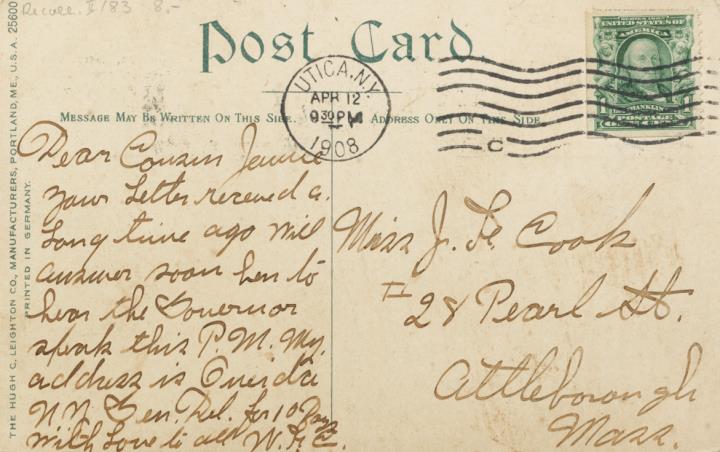 Recoll. II/83 8,-
Post Card
UTICA, N.Y.
APR 12
9 30 PM
1908
SERIES 1902
UNITED STATES OF
AMERICA
FRANKLIN
POSTAGE
C
MESSAGE MAY BE WRITTEN ON THIS SIDE.
ADDRESS ONLY ON THIS SIDE
Dear Cousin Jennie
your letter received a
long time ago will
answer soon hen to
hear the Governor
speak this P.M. My
address is Oneida
N.Y. Gen. Del. for 10 Days
with love to all W.F.C.
Miss J. F. Cook
28 Pearl St.
Attleborough
Mass.
THE HUGH C. LEIGHTON CO., MANUFACTURERS, PORTLAND, ME., U.S.A. 25600
PRINTED IN GERMANY.